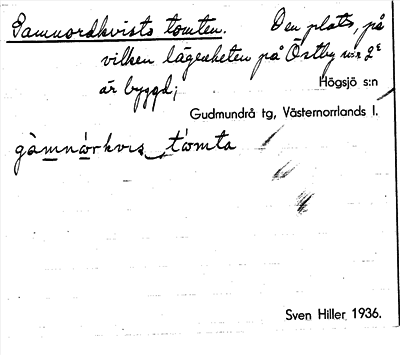 Gamnordkvists tomten. Den plats, på
vilken lägenheten på Östby nr 2
är byggd;
Högsjö s:n
Gudmundrå tg, Västernorrlands l.
gàmnórkvis tòmta
Sven Hiller 1936.